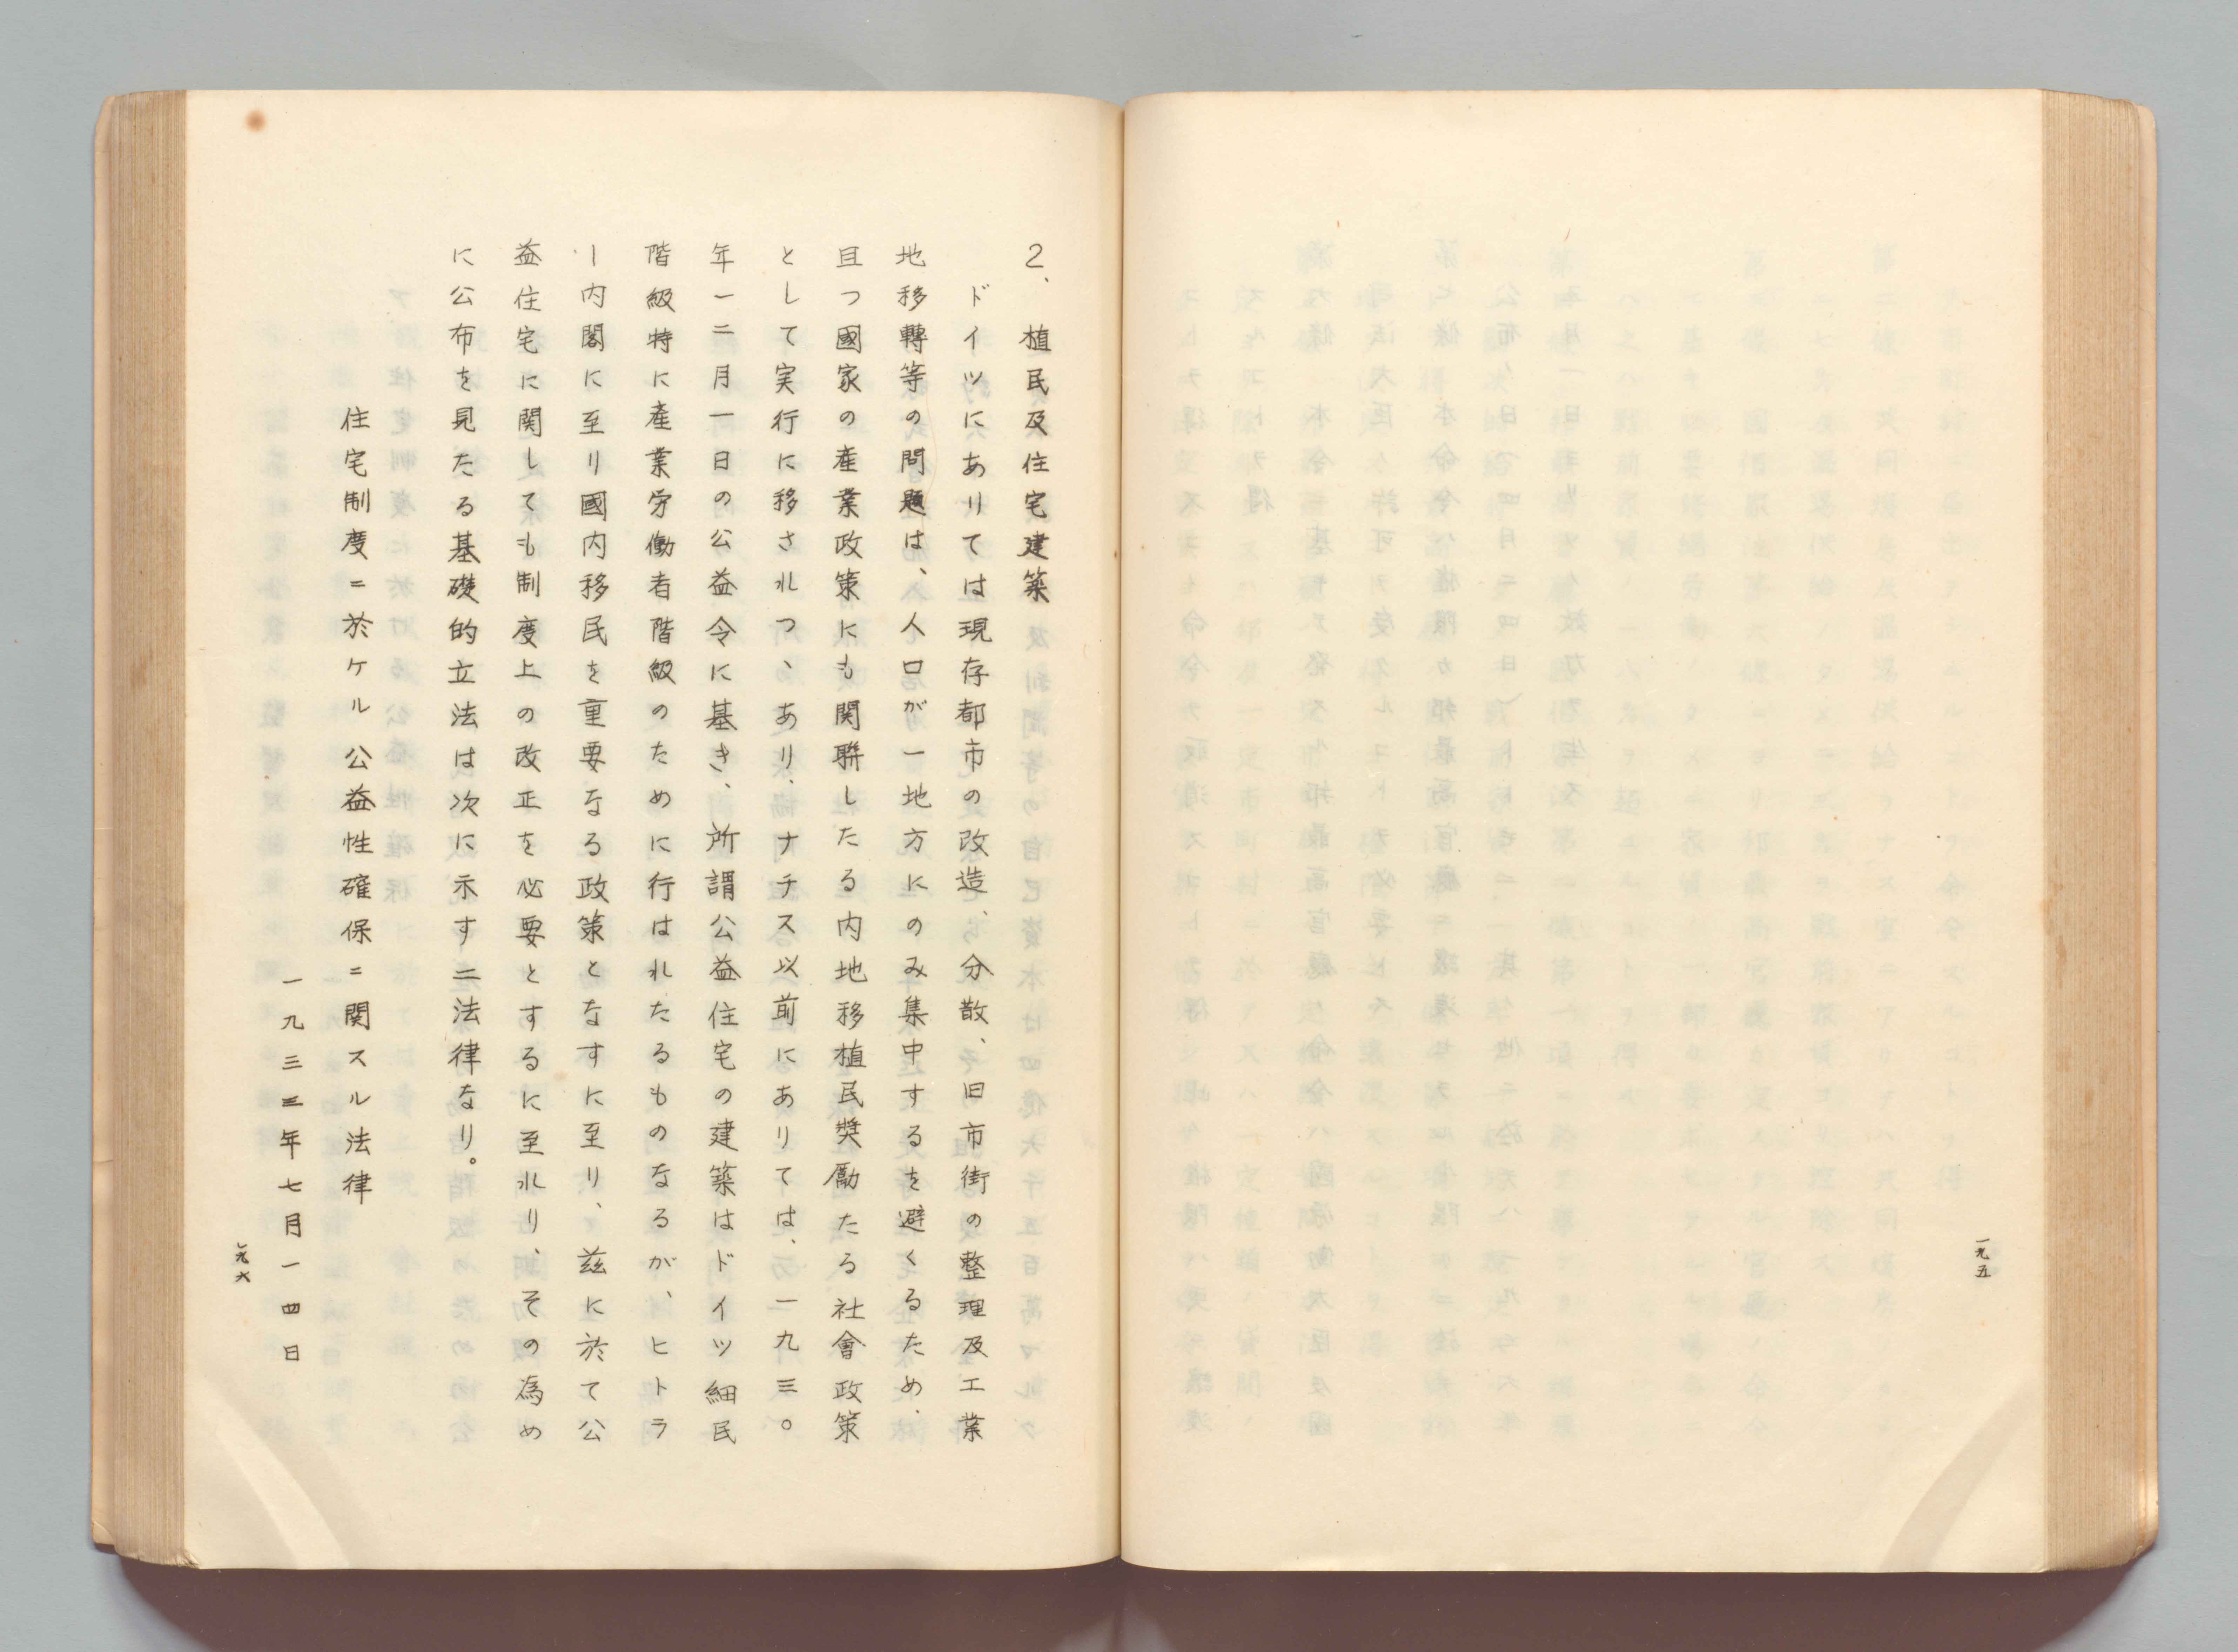 一九五
2、植民及住宅建築
ドイツにありては現存都市の改造、分散、旧市街の整理及工業
地移轉等の問題は、人口が一地方にのみ集中するを避くるため、
且つ國家の産業政策にも関聯したる内地移植民奬勵たる社會政策
として実行に移されつゝあり、ナチス以前にありては、一九三〇
年一二月一日の公益令に基き、所謂公益住宅の建築はドイツ細民
階級特に産業労働者階級のために行はれたるものなるが、ヒトラ
ー内閣に至り國内移民を重要なる政策となすに至り、茲に於て公
益住宅に関しても制度上の改正を必要とするに至れり、その為め
に公布を見たる基礎的立法は次に示す二法律なり。
住宅制度ニ於ケル公益性確保ニ関スル法律
一九三三年七月一四日
一九六